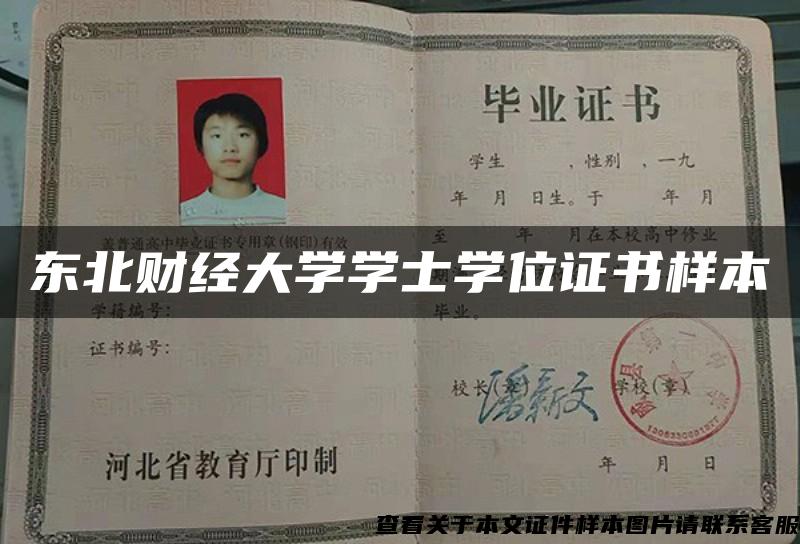 盖普通高中毕业证书专用章(钢印)有效
学籍编号:
证书编号:
河北省教育厅印制
毕业证书
学生 ,性别 ,一九
年 月 日生。于 年 月
至 年 月在本校高中修业
毕业。
校长(章) 潘新文 学校(章)
年 月 日
东北财经大学学士学位证书样本
查看关于本文证件样本图片请联系客服